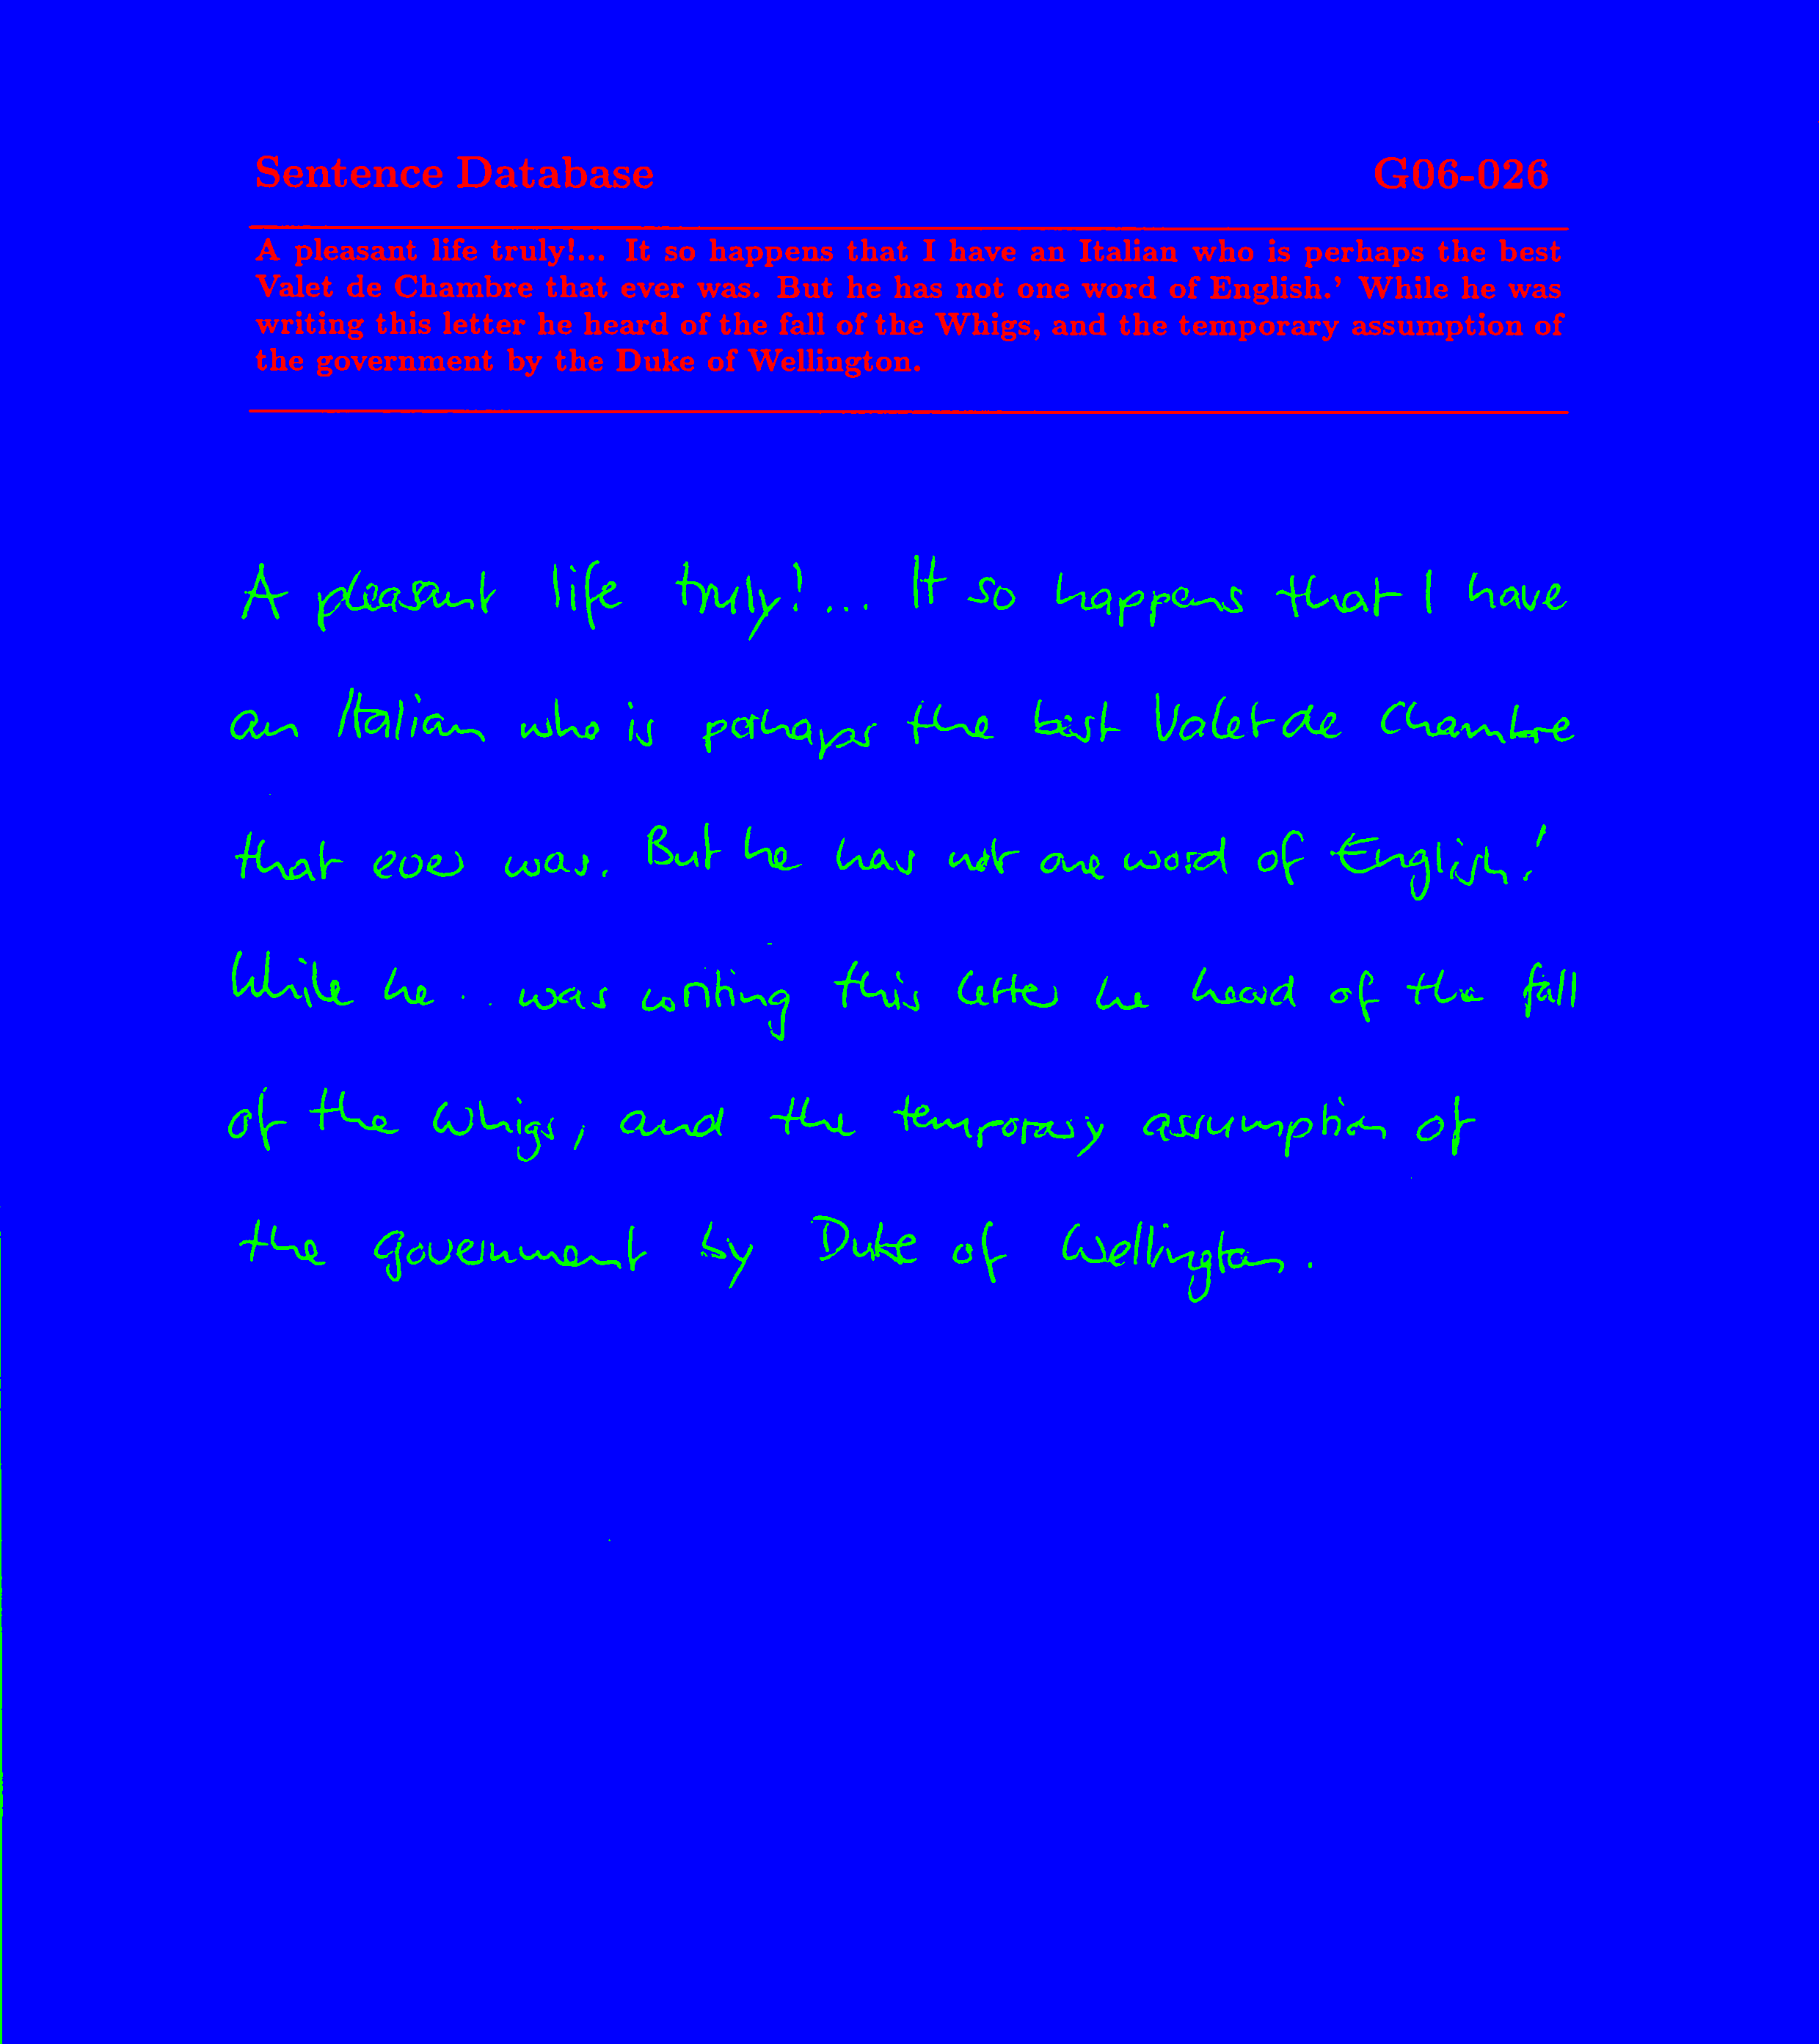 Sentence Database G06-026
A pleasant life truly!... It so happens that I have an Italian who is perhaps the best
Valet de Chambre that ever was. But he has not one word of English.' While he was
writing this letter he heard of the fall of the Whigs, and the temporary assumption of
the government by the Duke of Wellington.
A pleasant life truly!... It so happens that I have
an Italian who is perhaps the best Valet de Chambre
that ever was. But he has not one word of English.'
While he .. was writing this letter he heard of the fall
of the Whigs, and the temporary assumption of
the government by Duke of Wellington.